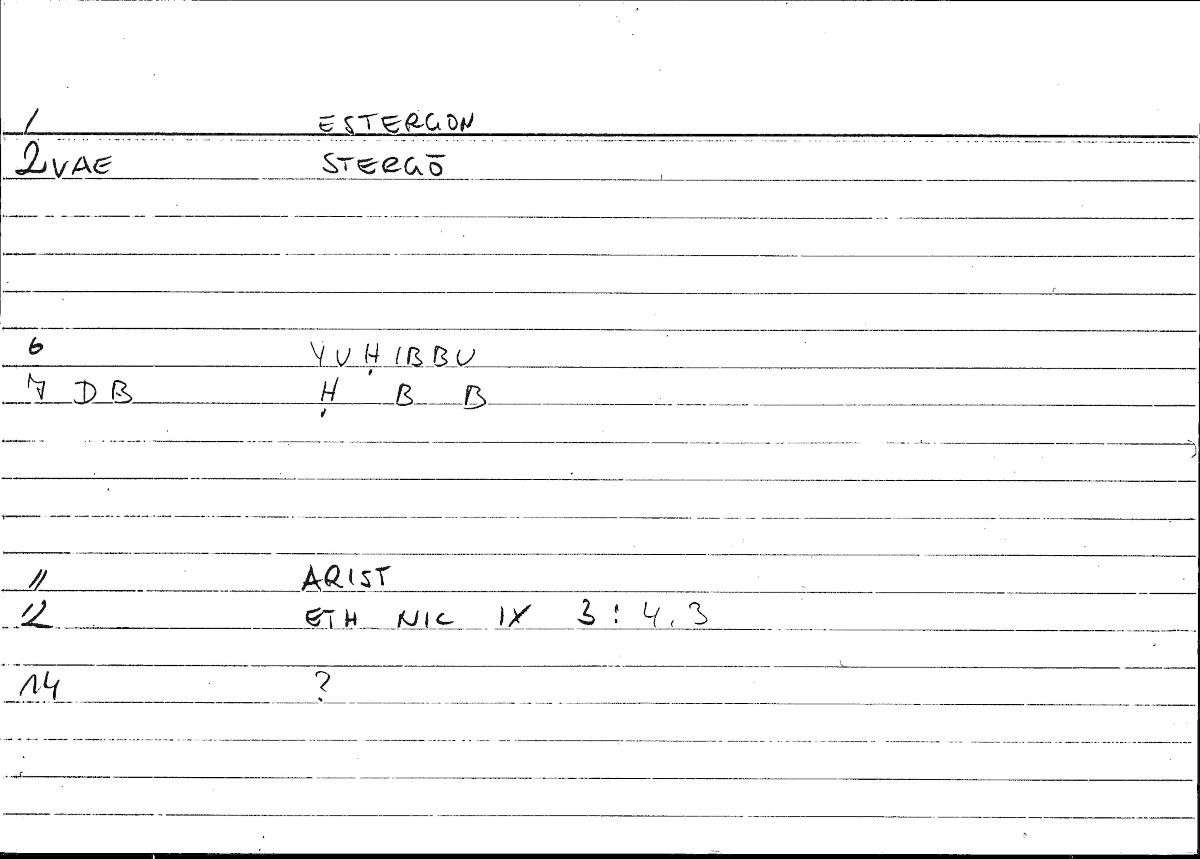 1 ESTERGON
2 VAE STERGŌ
6 YUḤIBBU
7 DB Ḥ B B
11 ARIST
12 ETH NIC IX 3 : 4.3
14 ?